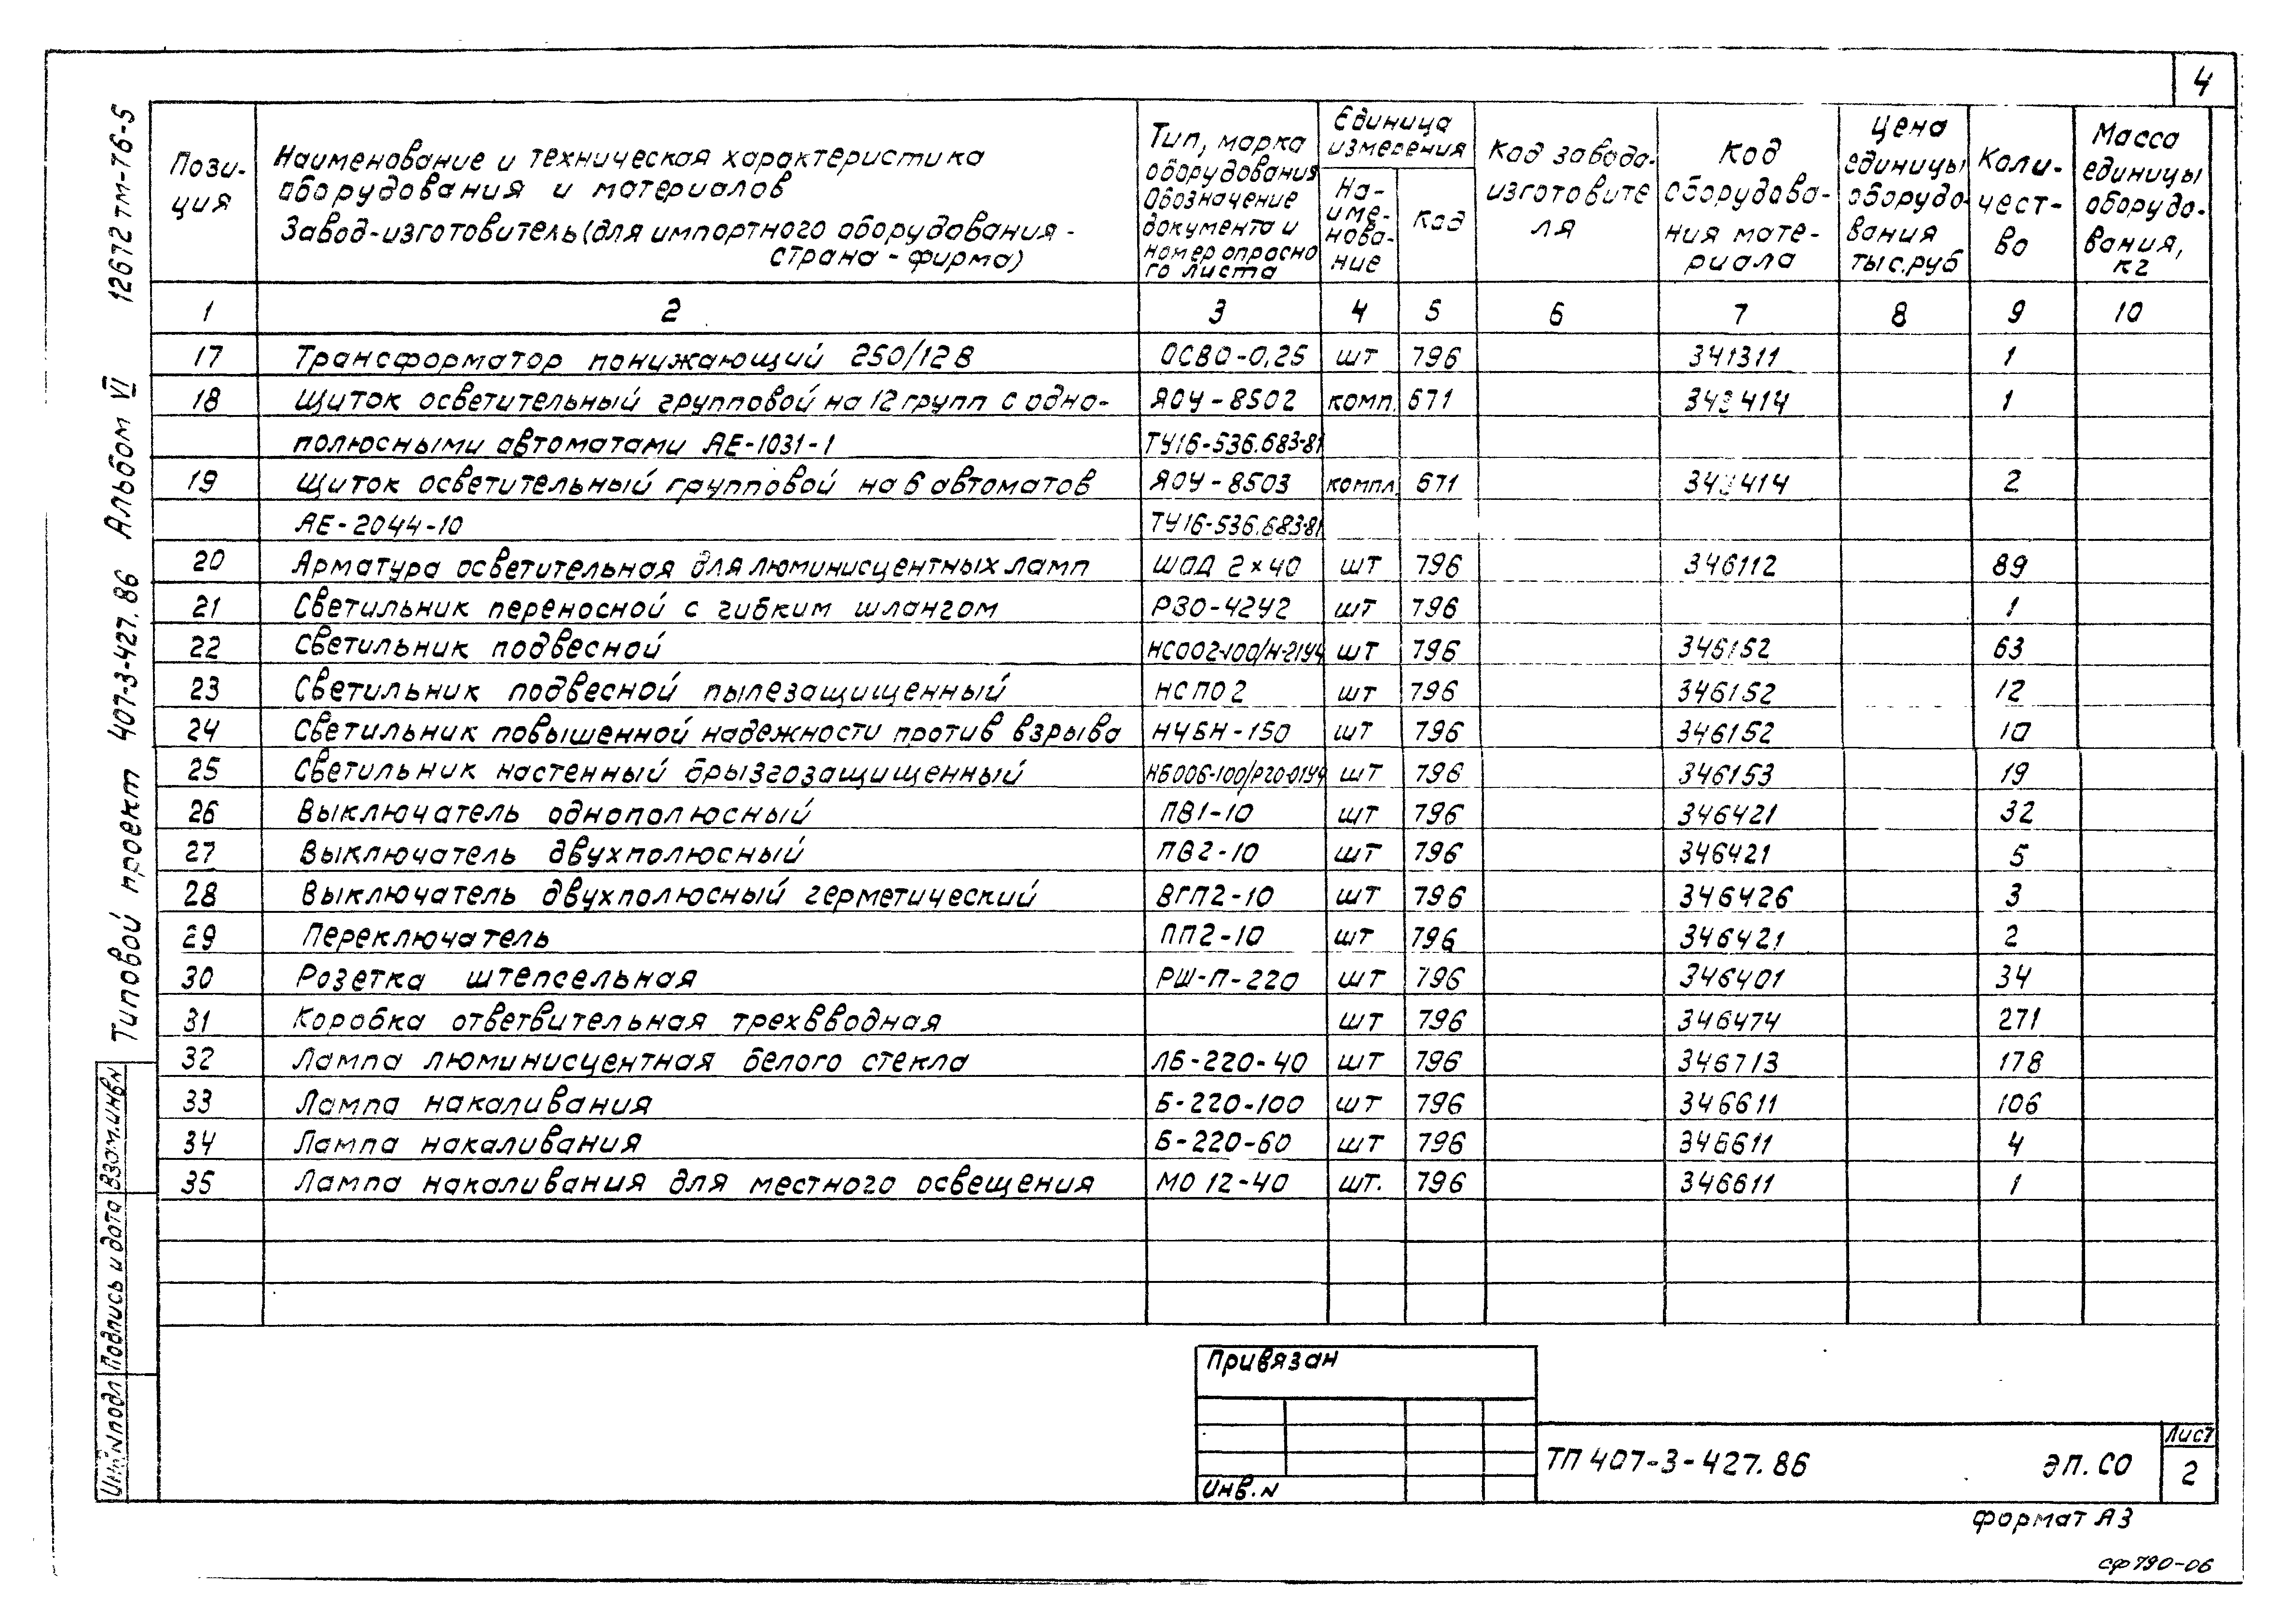 4
12672 тм-т6-5
Типовой проект 407-3-427.86 Альбом VI
Пози-
ция
Наименование и техническая характеристика
оборудования и материалов
Завод-изготовитель (для импортного оборудования -
страна - фирма)
Тип, марка
оборудования
Обозначение
документа и
номер опросно
го листа
Единица
измерения
На-
име-
нова-
ние
Код
Код завода-
изготовите
ля
Код
оборудова-
ния мате-
риала
Цена
единицы
оборудо-
вания
тыс.руб
Коли-
чест-
во
Масса
единицы
оборудо-
вания,
кг
1 2 3 4 5 6 7 8 9 10
17 Трансформатор понижающий 250/12 В ОСВО-0,25 шт 796 341311 1
18 Щиток осветительный групповой на 12 групп с одно- ЯОУ-8502 комп. 671 343414 1
полюсными автоматами АЕ-1031-1 ТУ16-536.683-81
19 Щиток осветительный групповой на 6 автоматов ЯОУ-8503 компл. 671 343414 2
АЕ-2044-10 ТУ16-536.683-81
20 Арматура осветительная для люминисцентных ламп ШОД 2×40 шт 796 346112 89
21 Светильник переносной с гибким шлангом РВО-42У2 шт 796 1
22 Светильник подвесной НСО02-100/Н-21У4 шт 796 346152 63
23 Светильник подвесной пылезащищенный НСП02 шт 796 346152 12
24 Светильник повышенной надежности против взрыва НЧБН-150 шт 796 346152 10
25 Светильник настенный брызгозащищенный НБ006-100/Р20-01У4 шт 796 346153 19
26 Выключатель однополюсный ПВ1-10 шт 796 346421 32
27 Выключатель двухполюсный ПВ2-10 шт 796 346421 5
28 Выключатель двухполюсный герметический ВГП2-10 шт 796 346426 3
29 Переключатель ПП2-10 шт 796 346421 2
30 Розетка штепсельная РШ-П-220 шт 796 346401 34
31 Коробка ответвительная трехвводная шт 796 346474 271
32 Лампа люминисцентная белого стекла ЛБ-220-40 шт 796 346713 178
33 Лампа накаливания Б-220-100 шт 796 346611 106
34 Лампа накаливания Б-220-60 шт 796 346611 4
35 Лампа накаливания для местного освещения МО 12-40 шт. 796 346611 1
Инв.N подл Подпись и дата Взам.инв N
Привязан
Инв.N
ТП 407-3-427.86 ЭП.СО
Лист
2
формат А3
сф 790-06